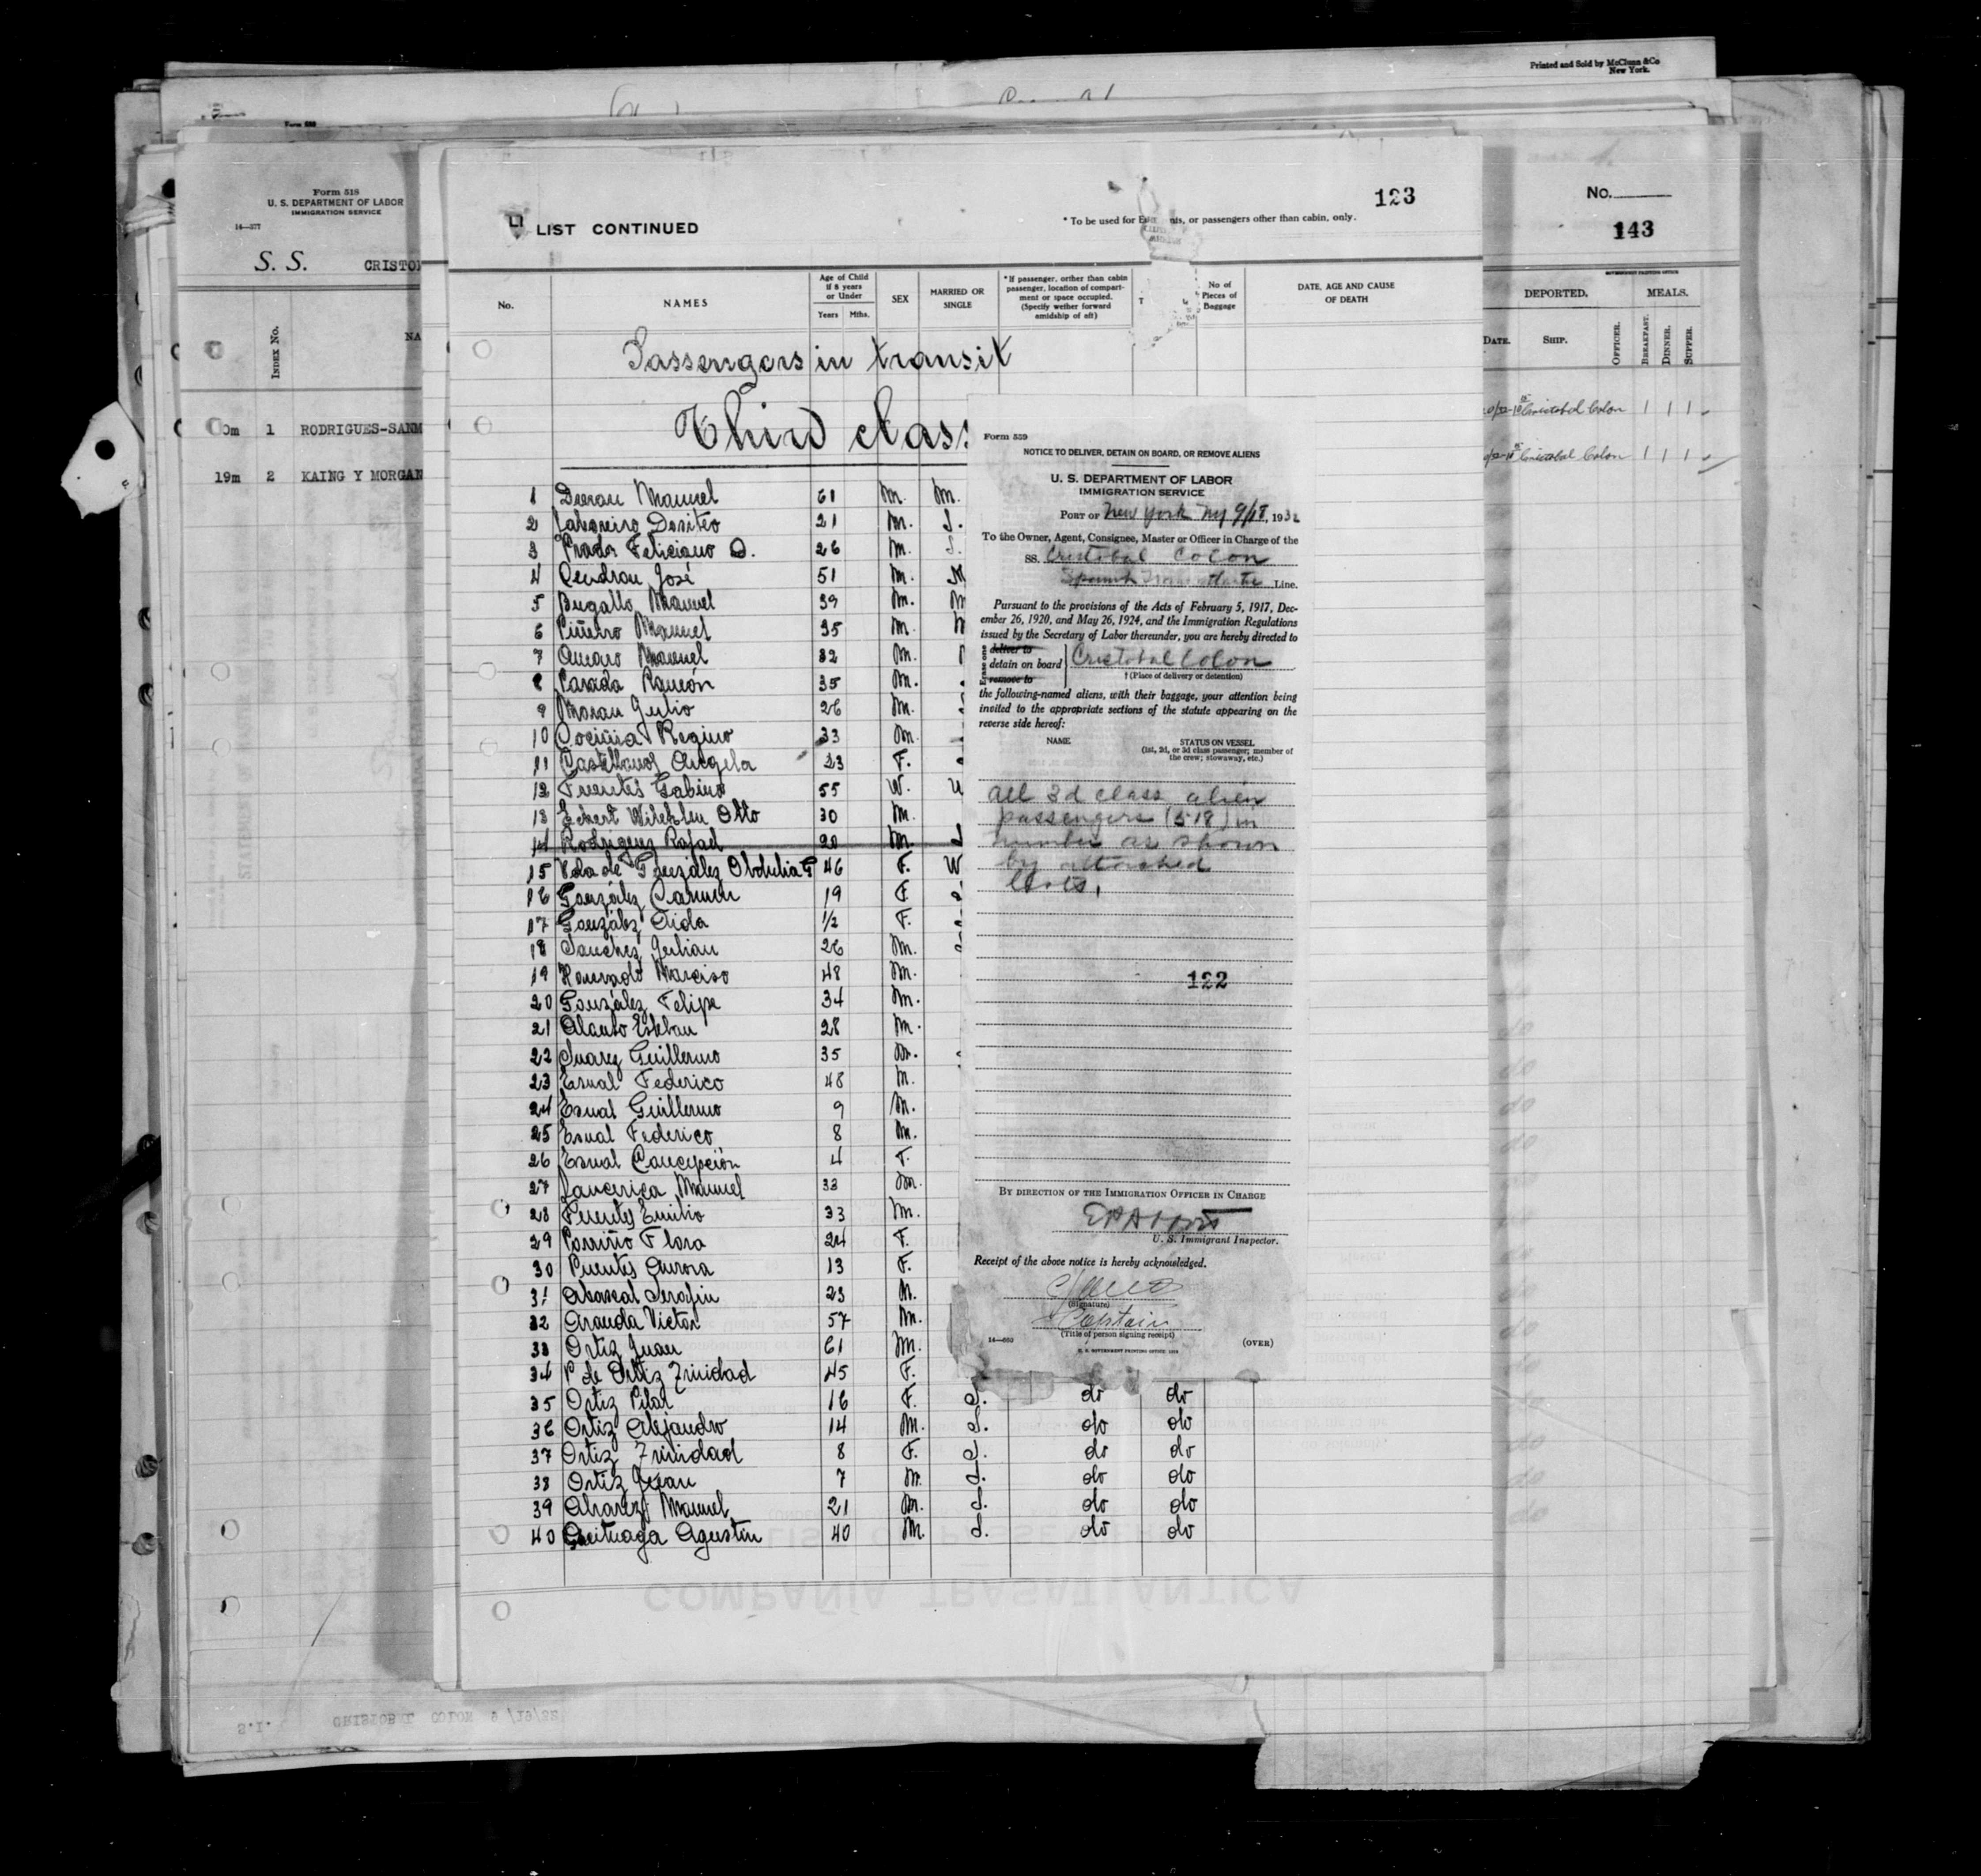 Printed and Sold by McClunn & Co
New York.
Form 518
U. S. DEPARTMENT OF LABOR
IMMIGRATION SERVICE
14—377
S. S. CRISTO
INDEX No.
NA
0m 1 RODRIGUES-SANM
19m 2 KAING Y MORGAN
No.
143
GOVERNMENT PRINTING OFFICE
DEPORTED. MEALS.
DATE. SHIP. OFFICER. BREAKFAST. DINNER. SUPPER.
Cristobal Colon 1 1 1
Cristobal Colon 1 1 1
123
LIST CONTINUED
* To be used for nts, or passengers other than cabin, only.
No. NAMES Age of Child if 8 years or Under Years Mths. SEX MARRIED OR SINGLE * If passenger, orther than cabin passenger, location of compartment or space occupied. (Specify wether forward amidship of aft) T No of Pieces of Baggage DATE, AGE AND CAUSE OF DEATH
Passengers in transit
Third class
1 Duran Manuel 61 m. m.
2 Desiteo 21 m. S.
3 Prada Feliciano O. 26 m. S.
4 Cendran José 51 m. M
5 Bugallo Manuel 39 m. m
6 Piñeiro Manuel 35 m.
7 Amaro Manuel 32 m.
8 Parada Ramón 35 m.
9 Moran Julio 26 m.
10 Cociña Regino 33 m.
11 Castellanos Angela 23 F.
12 Fuentes Gabino 55 W.
13 Eckert Otto 30 m.
14 Rodriguez Rafael 20 m. S
15 Vda de González Obdulia G 46 F. W
16 González Carmen 19 F.
17 González Aida 1/2 F.
18 Sanchez Julian 26 m.
19 Honrado Narciso 48 m.
20 González Felipe 34 m.
21 Alonso Esteban 28 m.
22 Suarez Guillermo 35 m.
23 Esnal Federico 48 m.
24 Esnal Guillermo 9 m.
25 Esnal Federico 8 m.
26 Esnal Concepción 4 F.
27 Manuel 33 m.
28 Puentes Emilio 33 m.
29 Flora 24 F.
30 Puentes Aurora 13 F.
31 Abascal Serafin 23 m.
32 Aranda Victor 57 m.
33 Ortiz Juan 61 m.
34 P de Ortiz Trinidad 45 F.
35 Ortiz Pilar 16 F. S. do do
36 Ortiz Alejandro 14 m. S. do do
37 Ortiz Trinidad 8 F. S. do do
38 Ortiz Juan 7 m. S. do do
39 Alvarez Manuel 21 m. S. do do
40 Agustin 40 m. S. do do
Form 559
NOTICE TO DELIVER, DETAIN ON BOARD, OR REMOVE ALIENS
U. S. DEPARTMENT OF LABOR
IMMIGRATION SERVICE
PORT OF New York Ny 9/18, 1932
To the Owner, Agent, Consignee, Master or Officer in Charge of the
SS. Cristobal Colon
Spanish Line.
Pursuant to the provisions of the Acts of February 5, 1917, Dec-
ember 26, 1920, and May 26, 1924, and the Immigration Regulations
issued by the Secretary of Labor thereunder, you are hereby directed to
Erase one
deliver to
detain on board Cristobal Colon
remove to † (Place of delivery or detention)
the following-named aliens, with their baggage, your attention being
invited to the appropriate sections of the statute appearing on the
reverse side hereof:
NAME STATUS ON VESSEL
(1st, 2d, or 3d class passenger; member of
the crew; stowaway, etc.)
all 3d class alien
passengers (518) in
number as shown
by attached
lists.
122
BY DIRECTION OF THE IMMIGRATION OFFICER IN CHARGE
U. S. Immigrant Inspector.
Receipt of the above notice is hereby acknowledged.
(Signature)
Captain
(Title of person signing receipt)
14—669 (OVER)
COMPAÑÍA TRASATLÁNTICA
S.I. CRISTOBAL COLON 9/19/32